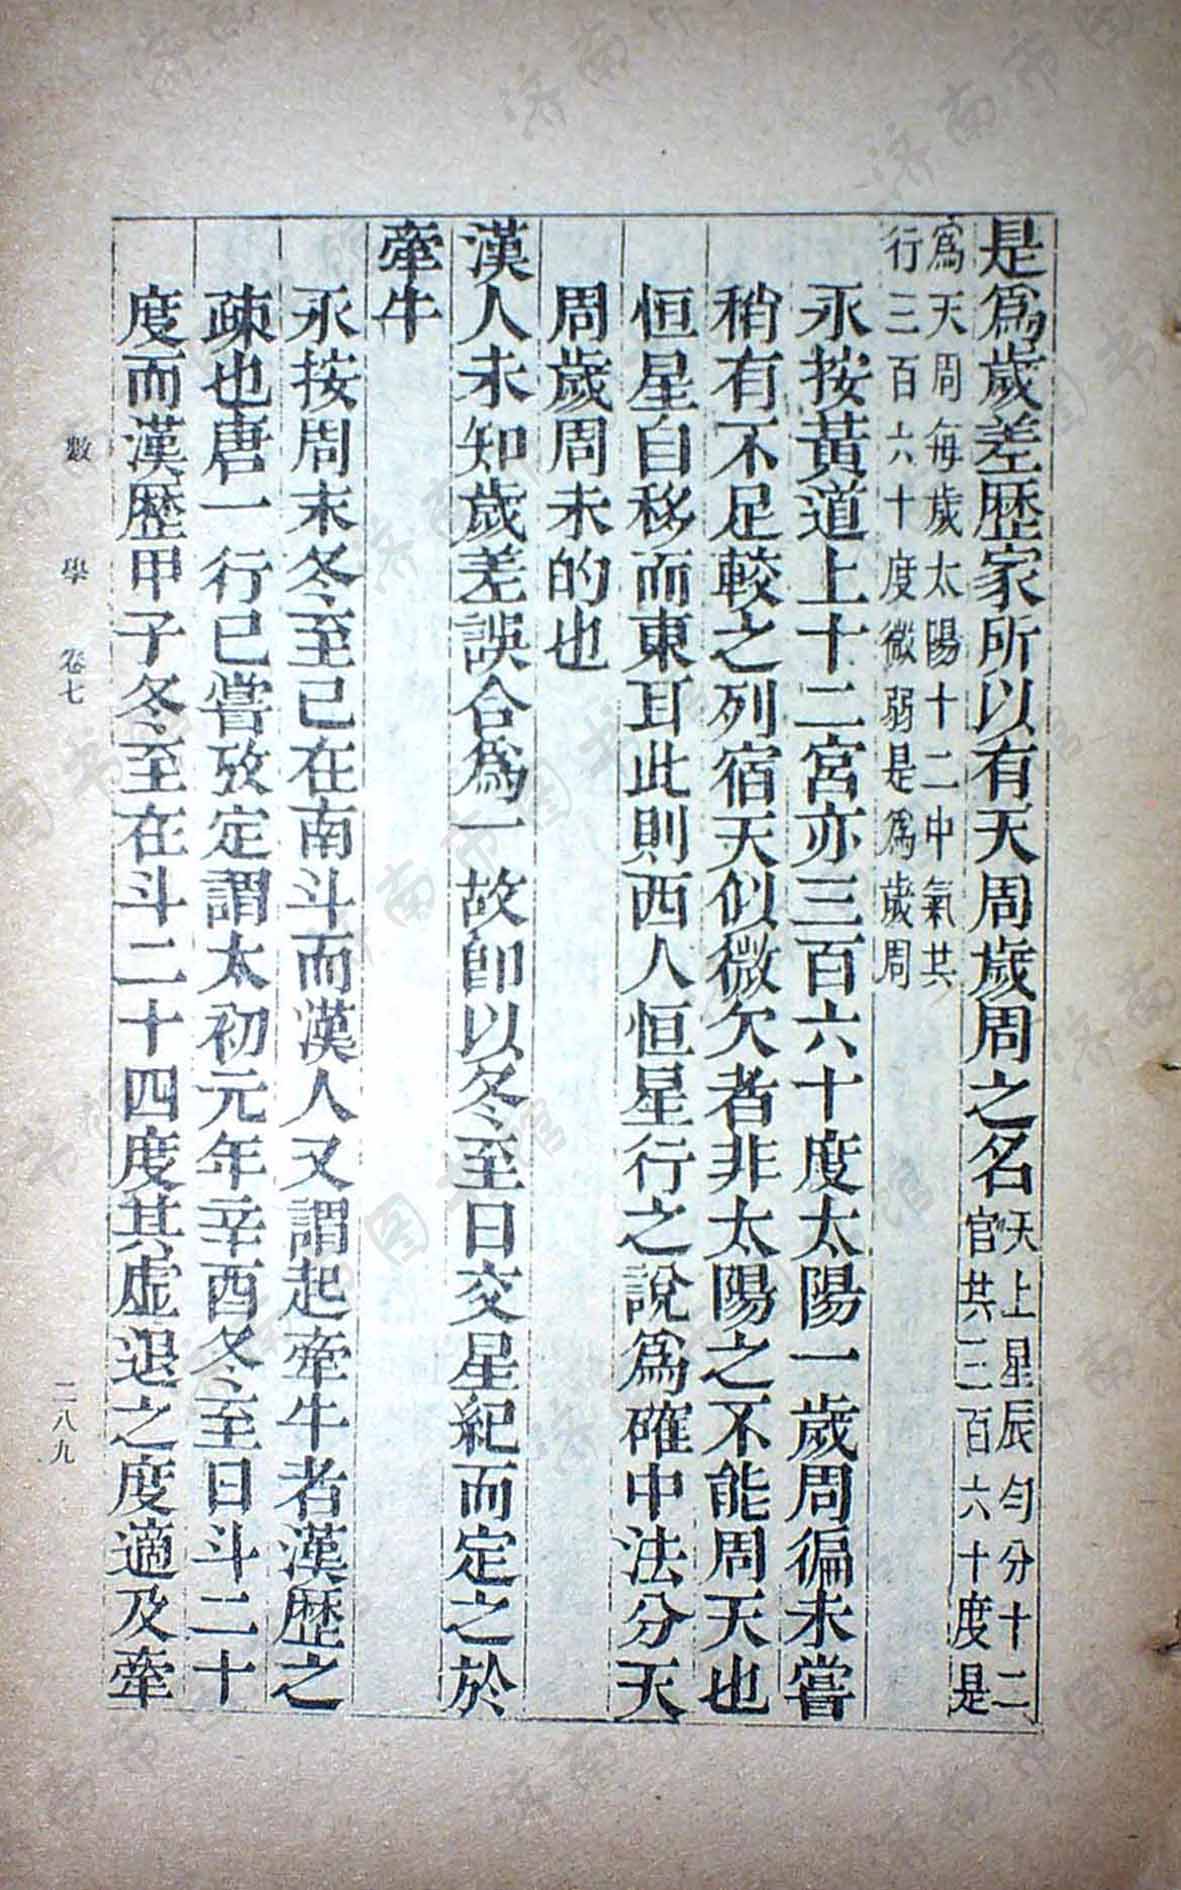 是爲歲差歴家所以有天周歲周之名天上星辰勻分十二官共三百六十度是
爲天周每歲太陽十二中氣共行三百六十度微弱是爲歲周
永按黃道上十二宮亦三百六十度太陽一歲周徧未嘗
稍有不足較之列宿天似微欠者非太陽之不能周天也
恒星自移而東耳此則西人恒星行之說爲確中法分天
周歲周未的也
漢人未知歲差誤合爲一故卽以冬至日交星紀而定之於
牽牛
永按周末冬至已在南斗而漢人又謂起牽牛者漢歴之
疎也唐一行已嘗攷定謂太初元年辛酉冬至日斗二十
度而漢歴甲子冬至在斗二十四度其虛退之度適及牽
數學 卷七
二八九